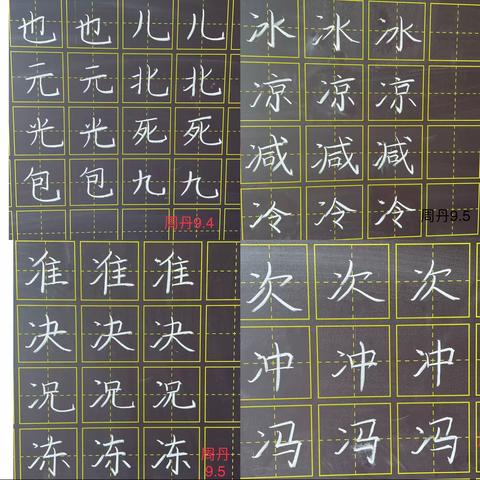 也也儿儿
元元北北
光光死死
包包九九
周丹9.4
冰冰冰
凉凉凉
减减减
冷冷冷
周丹9.5
准准准
决决决
况况况
冻冻冻
周丹
9.5
次次次
冲冲冲
冯冯冯